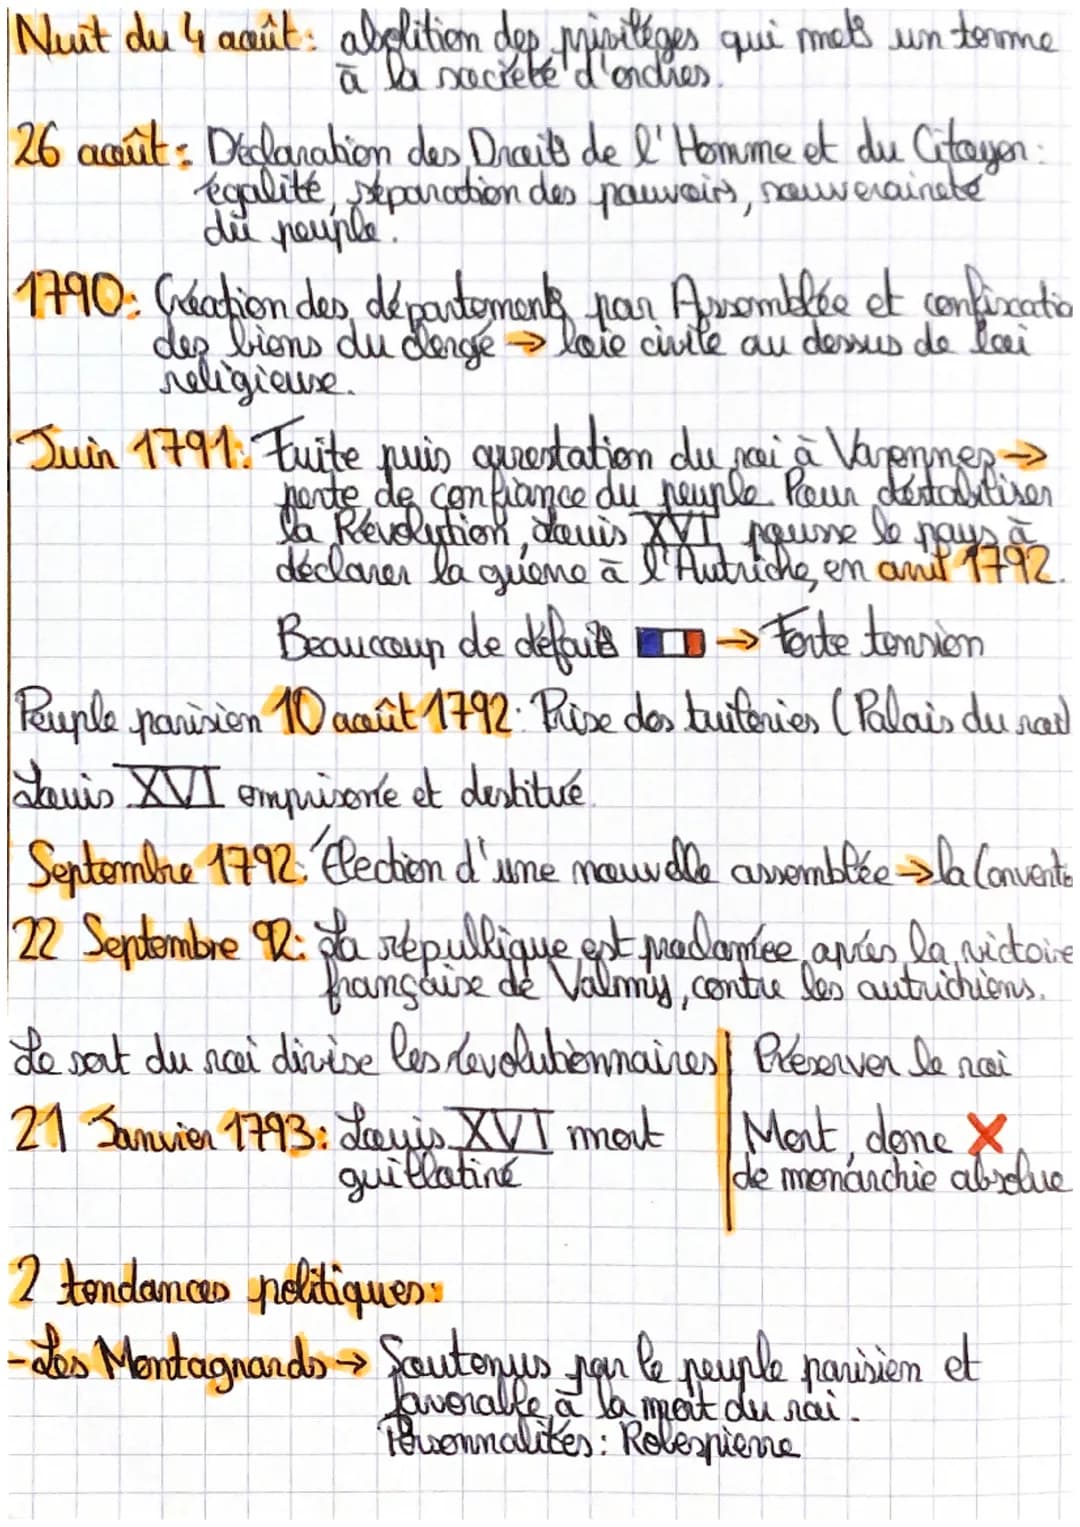 Nuit du 4 août: abolition des privilèges qui mets un terme
à la société d'ordres.
26 août: Déclaration des Droits de l'Homme et du Citoyen:
égalité, séparation des pouvoirs, souveraineté
du peuple.
1790: Création des départements par Assemblée et confiscatio
des biens du clergé → loie civile au dessus de loi
religieuse.
Juin 1791: Fuite puis arrestation du roi à Varennes →
perte de confiance du peuple. Pour déstabiliser
la Révolution, Louis XVI pousse le pays à
déclarer la guerre à l'Autriche, en avril 1792.
Beaucoup de défaits → Forte tension
Peuple parisien 10 août 1792: Prise des tuileries (Palais du roi)
Louis XVI emprisoné et destitué.
Septembre 1792: Élection d'une nouvelle assemblée → la Conventi
22 Septembre 92: La république est proclamée, après la victoire
française de Valmy, contre les autrichiens.
Le sort du roi divise les révolutionnaires Préserver le roi
21 Janvier 1793: Louis XVI mort Mort, donc X
guillotiné de monarchie absolue
2 tendances politiques:
- Les Montagnards → Soutenus par le peuple parisien et
favorable à la mort du roi.
Personnalités: Robespierre